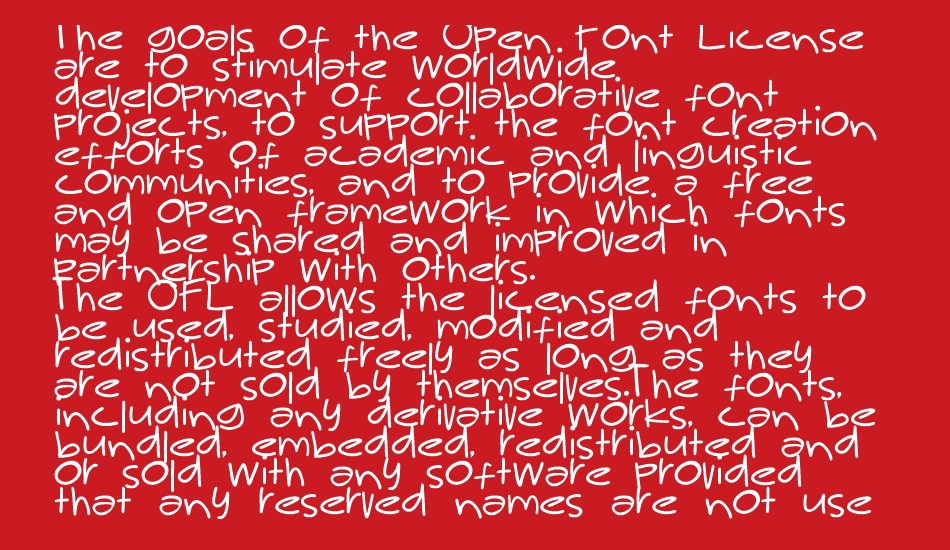 The goals of the Open Font License
are to stimulate worldwide
development of collaborative font
projects, to support the font creation
efforts of academic and linguistic
communities, and to provide a free
and open framework in which fonts
may be shared and improved in
partnership with others.
The OFL allows the licensed fonts to
be used, studied, modified and
redistributed freely as long as they
are not sold by themselves.The fonts,
including any derivative works, can be
bundled, embedded, redistributed and
or sold with any software provided
that any reserved names are not use